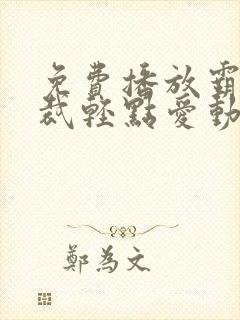 免費播放霸
裁輕點愛動
鄭為文